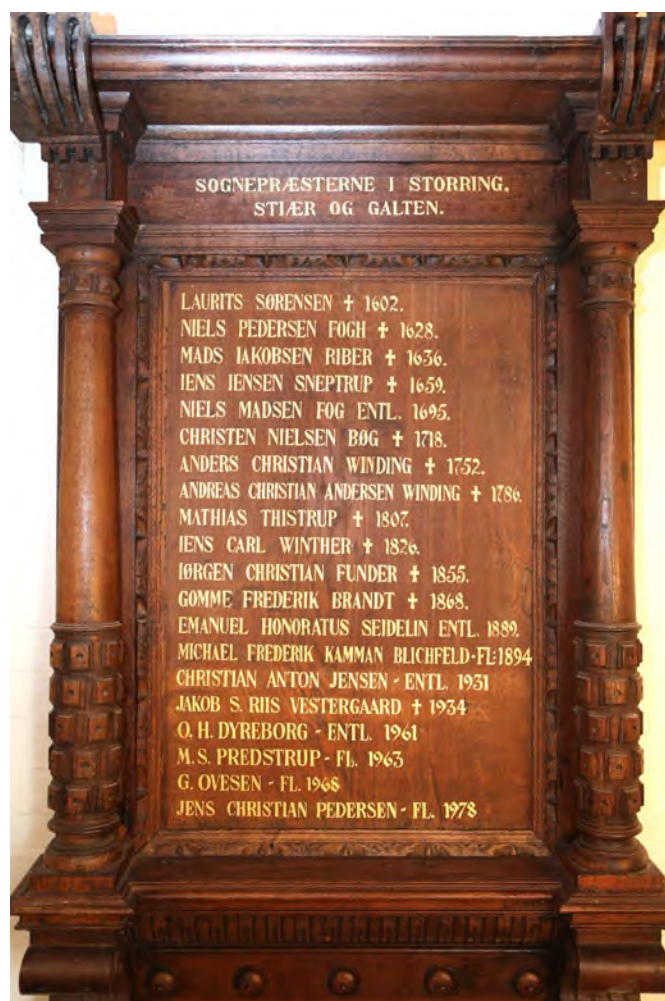 SOGNEPRÆSTERNE I STORRING,
STIÆR OG GALTEN.
LAURITS SØRENSEN ✝ 1602.
NIELS PEDERSEN FOGH ✝ 1628.
MADS IAKOBSEN RIBER ✝ 1636.
IENS JENSEN SNEPTRUP ✝ 1659.
NIELS MADSEN FOG ENTL. 1695.
CHRISTEN NIELSEN BØG ✝ 1718.
ANDERS CHRISTIAN WINDING ✝ 1752.
ANDREAS CHRISTIAN ANDERSEN WINDING ✝ 1786.
MATHIAS THISTRUP ✝ 1807.
IENS CARL WINTHER ✝ 1826.
IØRGEN CHRISTIAN FUNDER ✝ 1855.
GOMME FREDERIK BRANDT ✝ 1868.
EMANUEL HONORATUS SEIDELIN ENTL. 1889.
MICHAEL FREDERIK KAMMAN BLICHFELD-FL:1894
CHRISTIAN ANTON JENSEN - ENTL. 1931
JAKOB S. RIIS VESTERGAARD ✝ 1934
O. H. DYREBORG - ENTL. 1961
M. S. PREDSTRUP - FL. 1963
G. OVESEN - FL. 1968
JENS CHRISTIAN PEDERSEN - FL. 1978